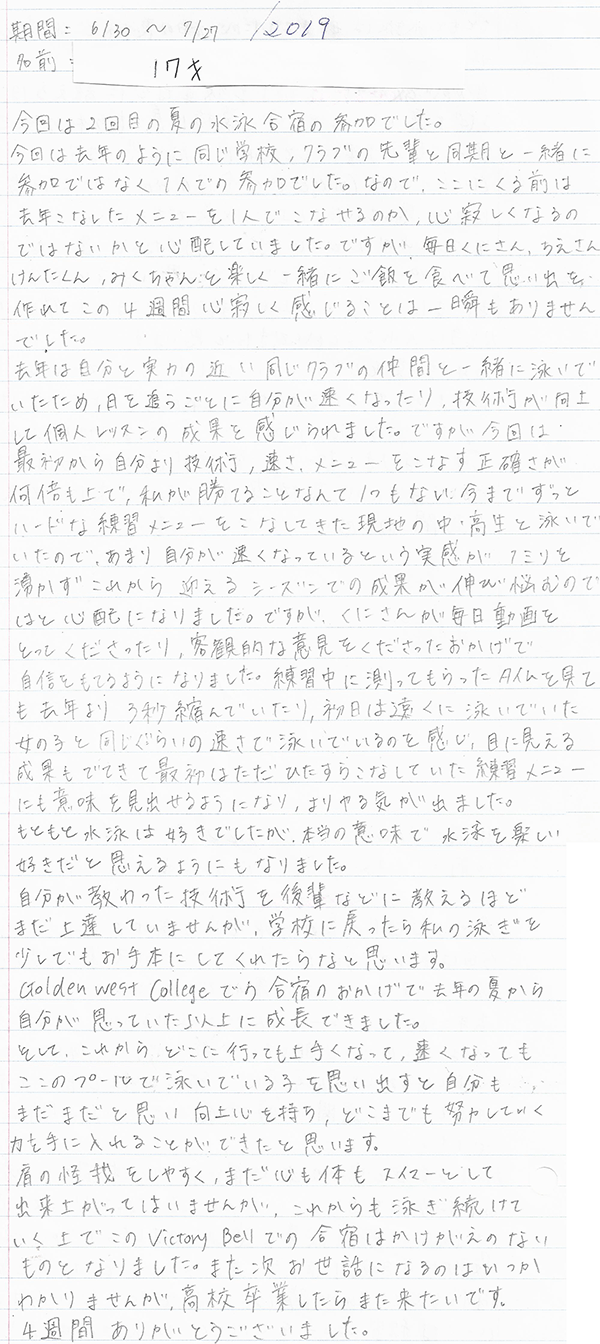 期間: 6/30 〜 7/27 /2019
名前: 17才
今回は2回目の夏の水泳合宿の参加でした。
今回は去年のように同じ学校、クラブの先輩と同期と一緒に
参加ではなく1人での参加でした。なので、ここにくる前は
去年こなしたメニューを1人でこなせるのか、心寂しくなるの
ではないかと心配していました。ですが、毎日くにさん、ちえさん
けんたくん、みくちゃんと楽しく一緒にご飯を食べて思い出を
作れてこの4週間心寂しく感じることは一瞬もありません
でした。
去年は自分と実力の近い同じクラブの仲間と一緒に泳いで
いたため、日を追うごとに自分が速くなったり、技術が向上
して個人レッスンの成果を感じられました。ですが今回は
最初から自分より技術、速さ、メニューをこなす正確さが
何倍も上で、私が勝てることなんて1つもない、今までずっと
ハードな練習メニューをこなしてきた現地の中・高生と泳いで
いたので、あまり自分が速くなっているという実感が1ミリと
湧かずこれから迎えるシーズンでの成果が伸び悩むので
はと心配になりました。ですが、くにさんが毎日動画を
とってくださったり、客観的な意見をくださったおかげで
自信をもてるようになりました。練習中に測ってもらったタイムを見て
も去年より3秒縮んでいたり、初日は遠くに泳いでいた
女の子と同じぐらいの速さで泳いでいるのを感じ、目に見える
成果もでてきて最初はただひたすらこなしていた練習メニュー
にも意味を見出せるようになり、よりやる気が出ました。
もともと水泳は好きでしたが、本当の意味で水泳を楽しい
好きだと思えるようにもなりました。
自分が教わった技術を後輩などに教えるほど
まだ上達していませんが、学校に戻ったら私の泳ぎを
少しでもお手本にしてくれたらなと思います。
Golden West Collegeでう合宿のおかげで去年の夏から
自分が思っていた以上に成長できました。
そして、これからどこに行っても上手くなって、速くなっても
ここのプールで泳いでいる子を思い出すと自分も
まだまだと思い向上心を持ち、どこまでも努力していく
力を手に入れることができたと思います。
肩の怪我をしやすく、まだ心も体もスイマーとして
出来上がってはいませんが、これからも泳ぎ続けて
いく上でこのVictory Bellでの合宿はかけがえのない
ものとなりました。また次お世話になるのはいつか
わかりませんが、高校卒業したらまた来たいです。
4週間ありがとうございました。